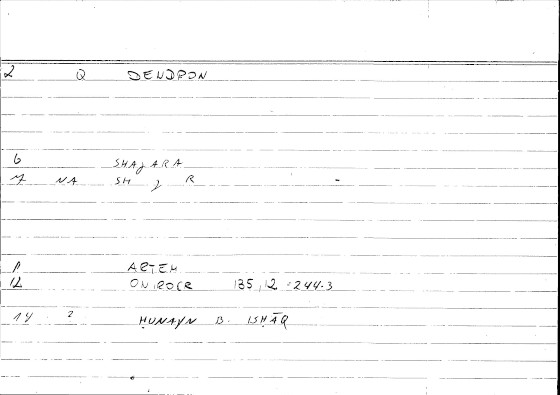 2 Q DENDPON
6 SHAJARA
7 NA SH J R -
ARTEM
12 ONIROCR 135,12 = 244.3
14 2 ḤUNAYN B. ISḤĀQ